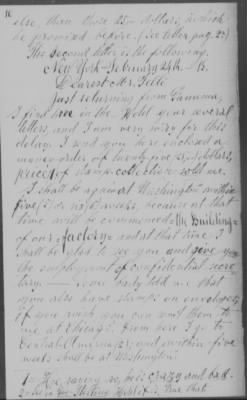 10
else, than those 25 dollars, which
he promised before. (See letter, pag. 22)
The second letter is the following.
New York - February 24th.
Dearest Mr. Tilli
Just returning from Panama,
I find here in the Hotel your several
letters, and I am very sorry for this
delay. I send you here enclosed a
money-order of twenty five dollars,
price of stamp-collection sold me.
I shall be again at Washington within
five or six weeks, because at that
time will be commenced the Building
of our factory and at that time I
shall be glad to see you and give you
the employment of confidential secre
tary. - told me that
you also have stamps on envelopes,
if you wish you can send them to
me, at Chicago. From here I go to
Central America, and within five
weeks shall be at Washington.
1= crazy and bad.